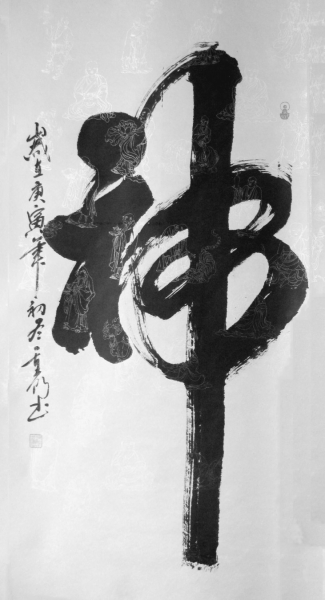 神
歲在庚寅年初冬 书